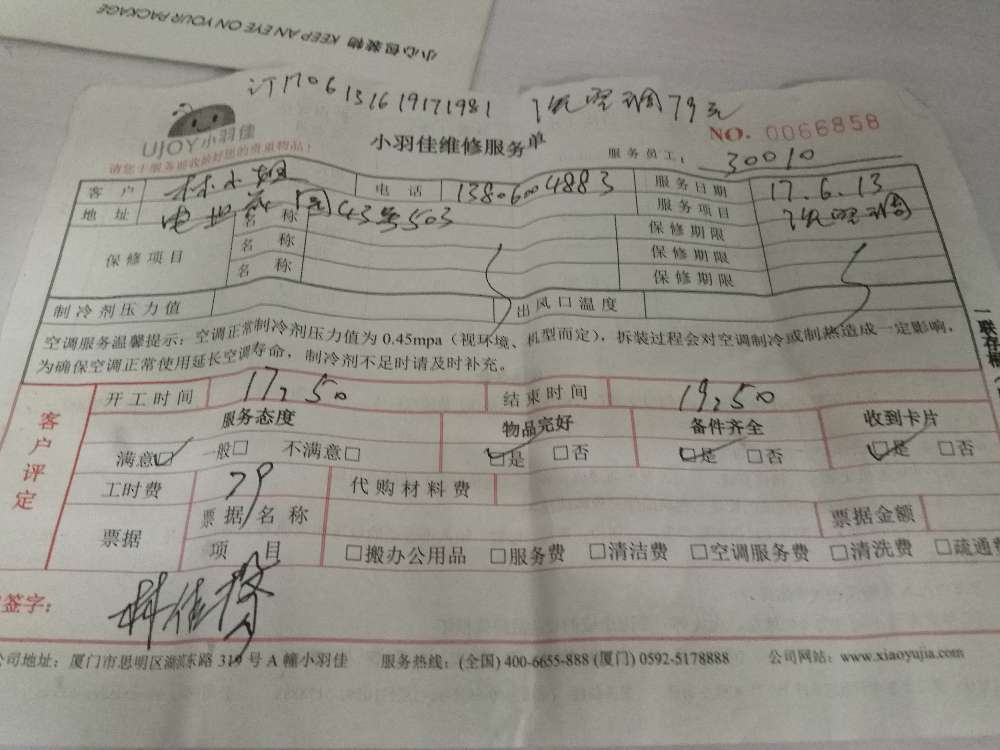 小心包装物 KEEP AN EYE ON YOUR PACKAGE
订1706131619171981 洗空调79元
UJOY小羽佳
小羽佳维修服务单
NO. 0066858
请您于服务前收拾好您的贵重物品!
服务员工: 30010
客户 林小姐 电话 13806004883 服务日期 17.6.13
地址 43号503 服务项目 洗空调
保修项目 名称 保修期限
名称 保修期限
名称 保修期限
制冷剂压力值 出风口温度
空调服务温馨提示:空调正常制冷剂压力值为 0.45mpa(视环境、机型而定),拆装过程会对空调制冷或制热造成一定影响,
为确保空调正常使用延长空调寿命,制冷剂不足时请及时补充。
一联存根
客户评定
开工时间 17:50 结束时间 19:50
服务态度 物品完好 备件齐全 收到卡片
满意☑ 一般□ 不满意□ ☑是 □否 ☑是 □否 ☑是 □否
工时费 79 代购材料费
票据 票据名称 票据金额
项目 □搬办公用品 □服务费 □清洁费 □空调服务费 □清洗费 □疏通费
签字:
公司地址:厦门市思明区湖东路 319 号 A 幢小羽佳 服务热线:(全国) 400-6655-888 (厦门) 0592-5178888 公司网站:www.xiaoyujia.com